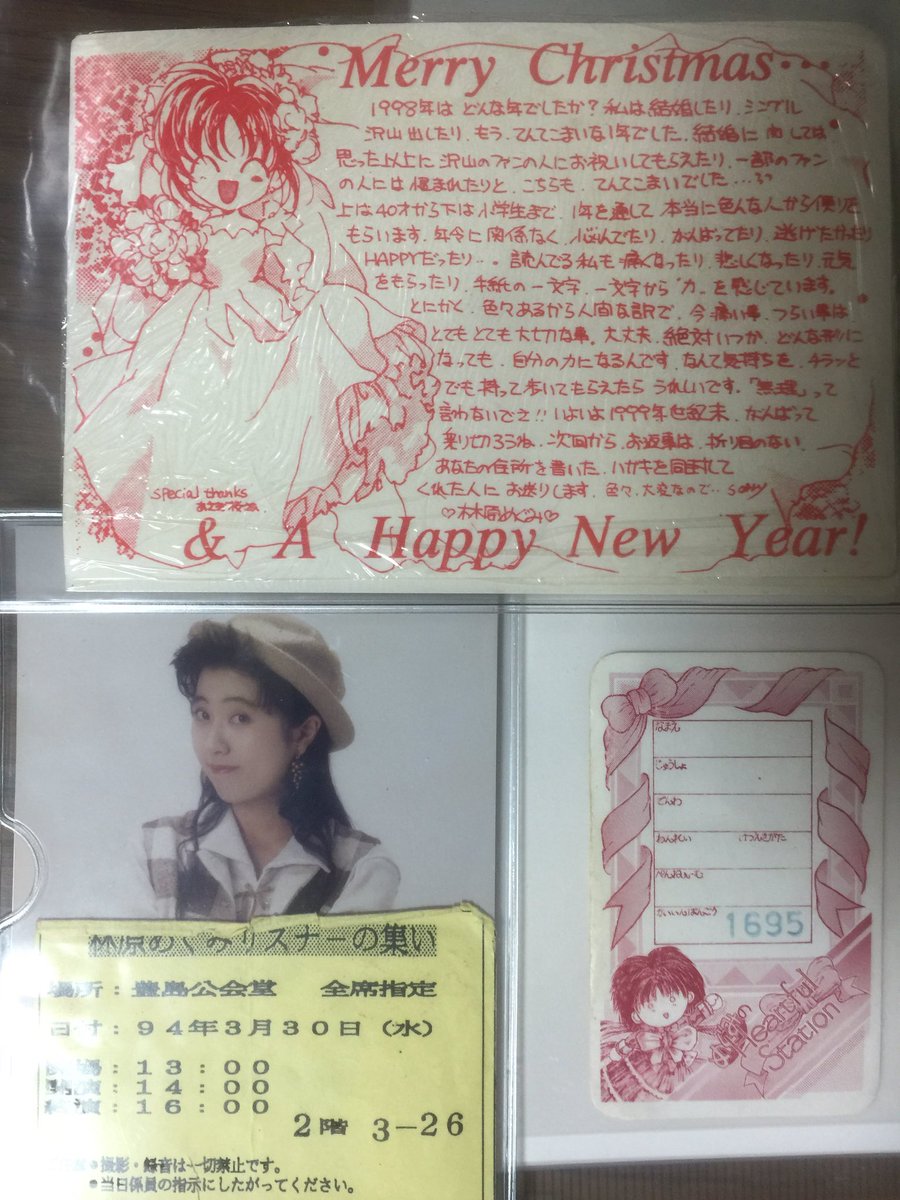 Merry Christmas...
1998年はどんな年でしたか?私は結婚したり、シングル
沢山出したり、もう、てんてこまいな1年でした、結婚に関しては
思った以上に沢山のファンの人にお祝いしてもらえたり、一部のファン
の人には恨まれたりと、こちらも、てんてこまいでした...
上は40才から下は小学生まで、1年を通して本当に色んな人から便りを
もらいます、年令に関係なく、悩んでたり、がんばってたり、逃げたかったり
HAPPYだったり...。読んでる私も痛くなったり、悲しくなったり、元気
をもらったり、手紙の一文字、一文字から"力"を感じています。
とにかく、色々あるから人間な訳で、今痛い事、つらい事は
とてもとても大切な事。大丈夫、絶対いつか、どんな形に
なっても、自分の力になるんです、なんて気持ちを、チラッと
でも持って歩いてもらえたらうれしいです。「無理」って
言わないでネ!!いよいよ1999年世紀末、がんばって
乗り切ろうね、次回から、お返事は、折り目のない
あなたの住所を書いた、ハガキを同封して
くれた人にお送りします、色々、大変なので...sorry
♡林原めぐみ♡
special thanks
& A Happy New Year!
林原めぐみリスナーの集い
場所:豊島公会堂 全席指定
日付:94年3月30日(水)
開場:13:00
開演:14:00
終演:16:00
2階 3-26
●撮影・録音は一切禁止です。
●当日係員の指示にしたがってください。
なまえ
じゅうしょ
でんわ
ねんれい けつえきがた
ぺんねぃむ
かいいんばんごう
1695
Heartful
Station